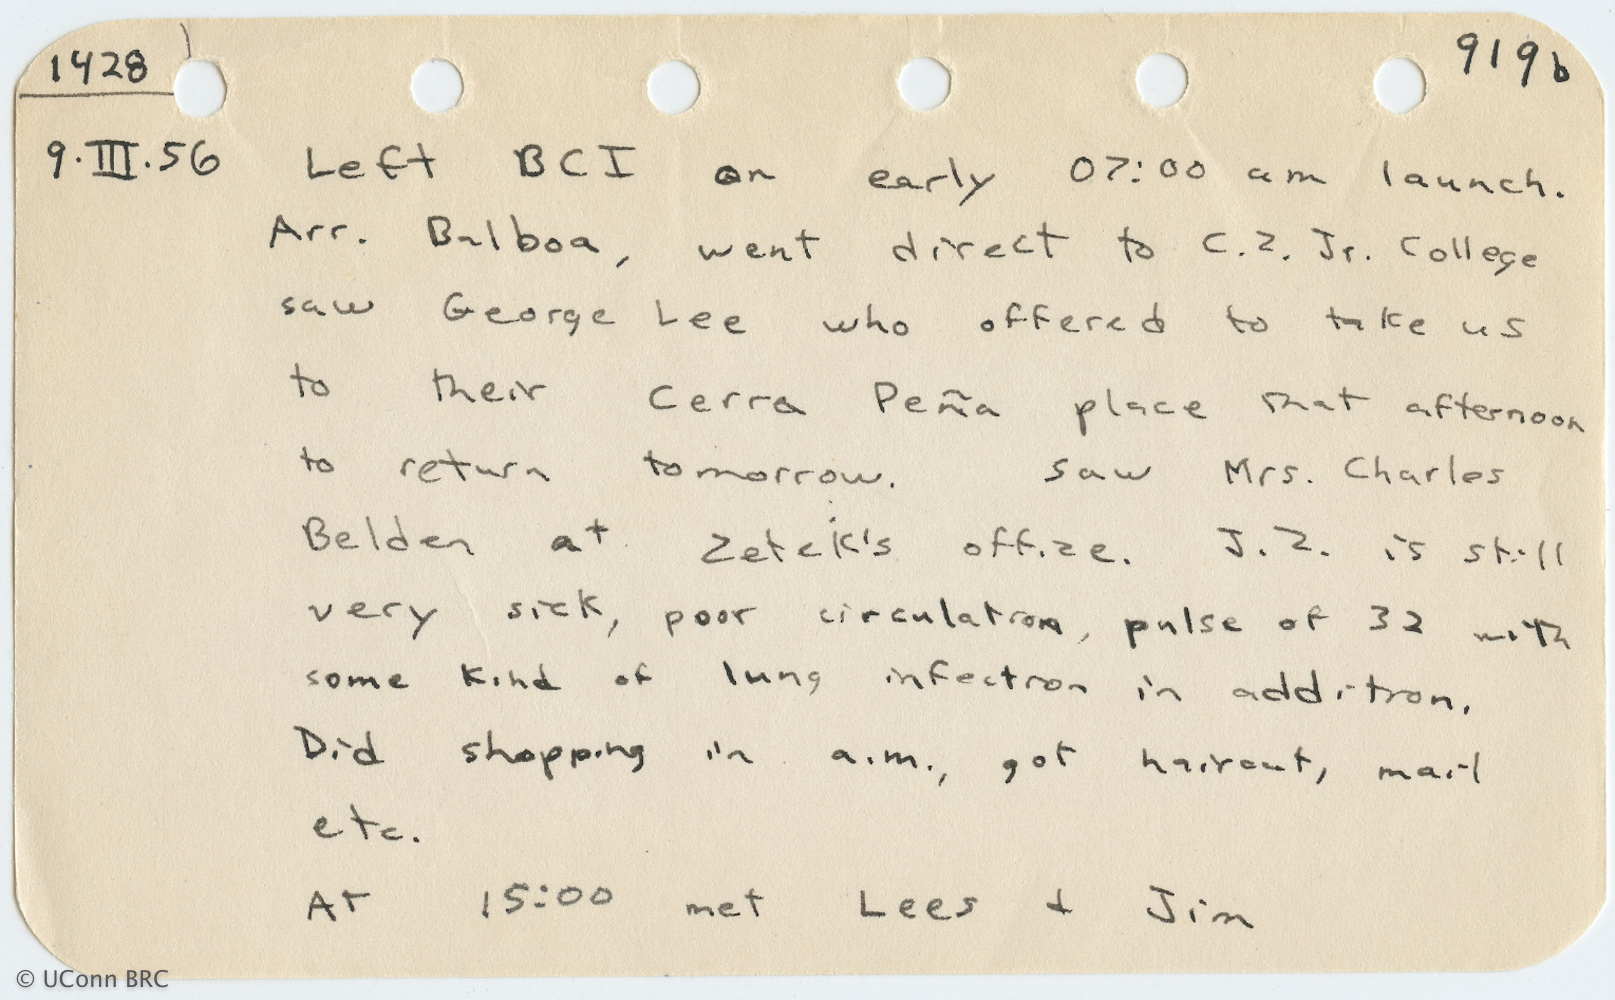 1428
919b
9.III.56 Left BCI on early 07:00 am launch.
Arr. Balboa, went direct to C.Z. Jr. College
saw George Lee who offered to take us
to their Cerra Peña place that afternoon
to return tomorrow. Saw Mrs. Charles
Belden at Zetek's office. J.Z. is still
very sick, poor circulation, pulse of 32 with
some kind of lung infection in addition.
Did shopping in a.m., got haircut, mail
etc.
At 15:00 met Lees & Jim
© UConn BRC